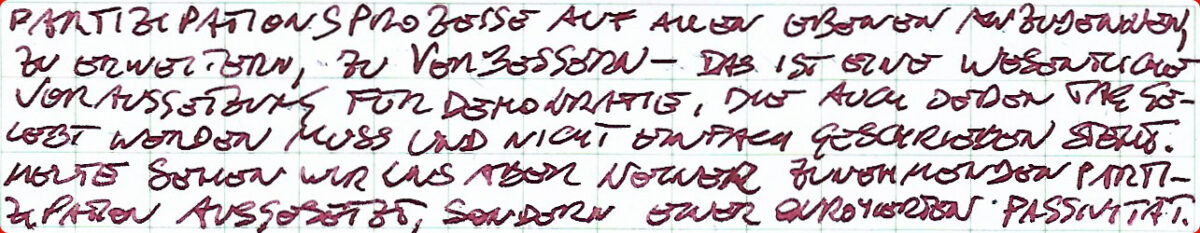 PARTIZIPATIONSPROZESSE AUF ALLEN EBENEN ANZUDENKEN,
ZU ERWEITERN, ZU VERBESSERN – DAS IST EINE WESENTLICHE
VORAUSSETZUNG FÜR DEMOKRATIE, DIE AUCH JEDEN TAG GE-
LEBT WERDEN MUSS UND NICHT EINFACH GESCHRIEBEN STEHT.
HEUTE SEHEN WIR UNS ABER KEINER ZUNEHMENDEN PARTI-
ZIPATION AUSGESETZT, SONDERN EINER OKROYIERTEN PASSIVITÄT.